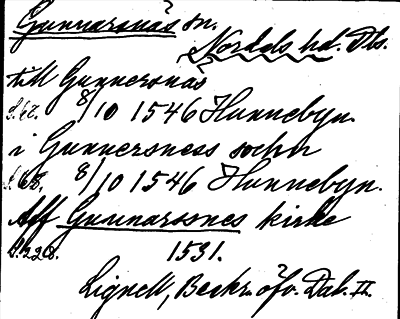 Gunnarsnäs sn.
Nordals hd. Dls.
till Gunnersnäs
s. 68. 8/10 1546 Hunnebyn.
i Gunnersness sochn
s. 68. 8/10 1546 Hunnebyn.
Aff Gunnarssnes kirke
s. 228. 1531.
Lignell, Beskr. öfv. Dal. II.